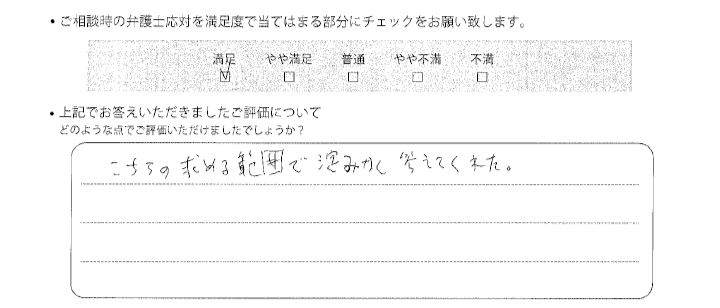 • ご相談時の弁護士応対を満足度で当てはまる部分にチェックをお願い致します。
満足 やや満足 普通 やや不満 不満
☑ ☐ ☐ ☐ ☐
• 上記でお答えいただきましたご評価について
どのような点でご評価いただけましたでしょうか？
こちらの求める範囲で深みかく答えてくれた。